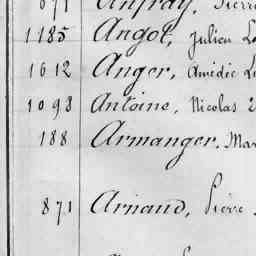 671 Anfray, Pierre
1185 Angot, Julien
1612 Anger, Amédée
1093 Antoine, Nicolas
188 Armanger, Mar
871 Arnaud, Pierre